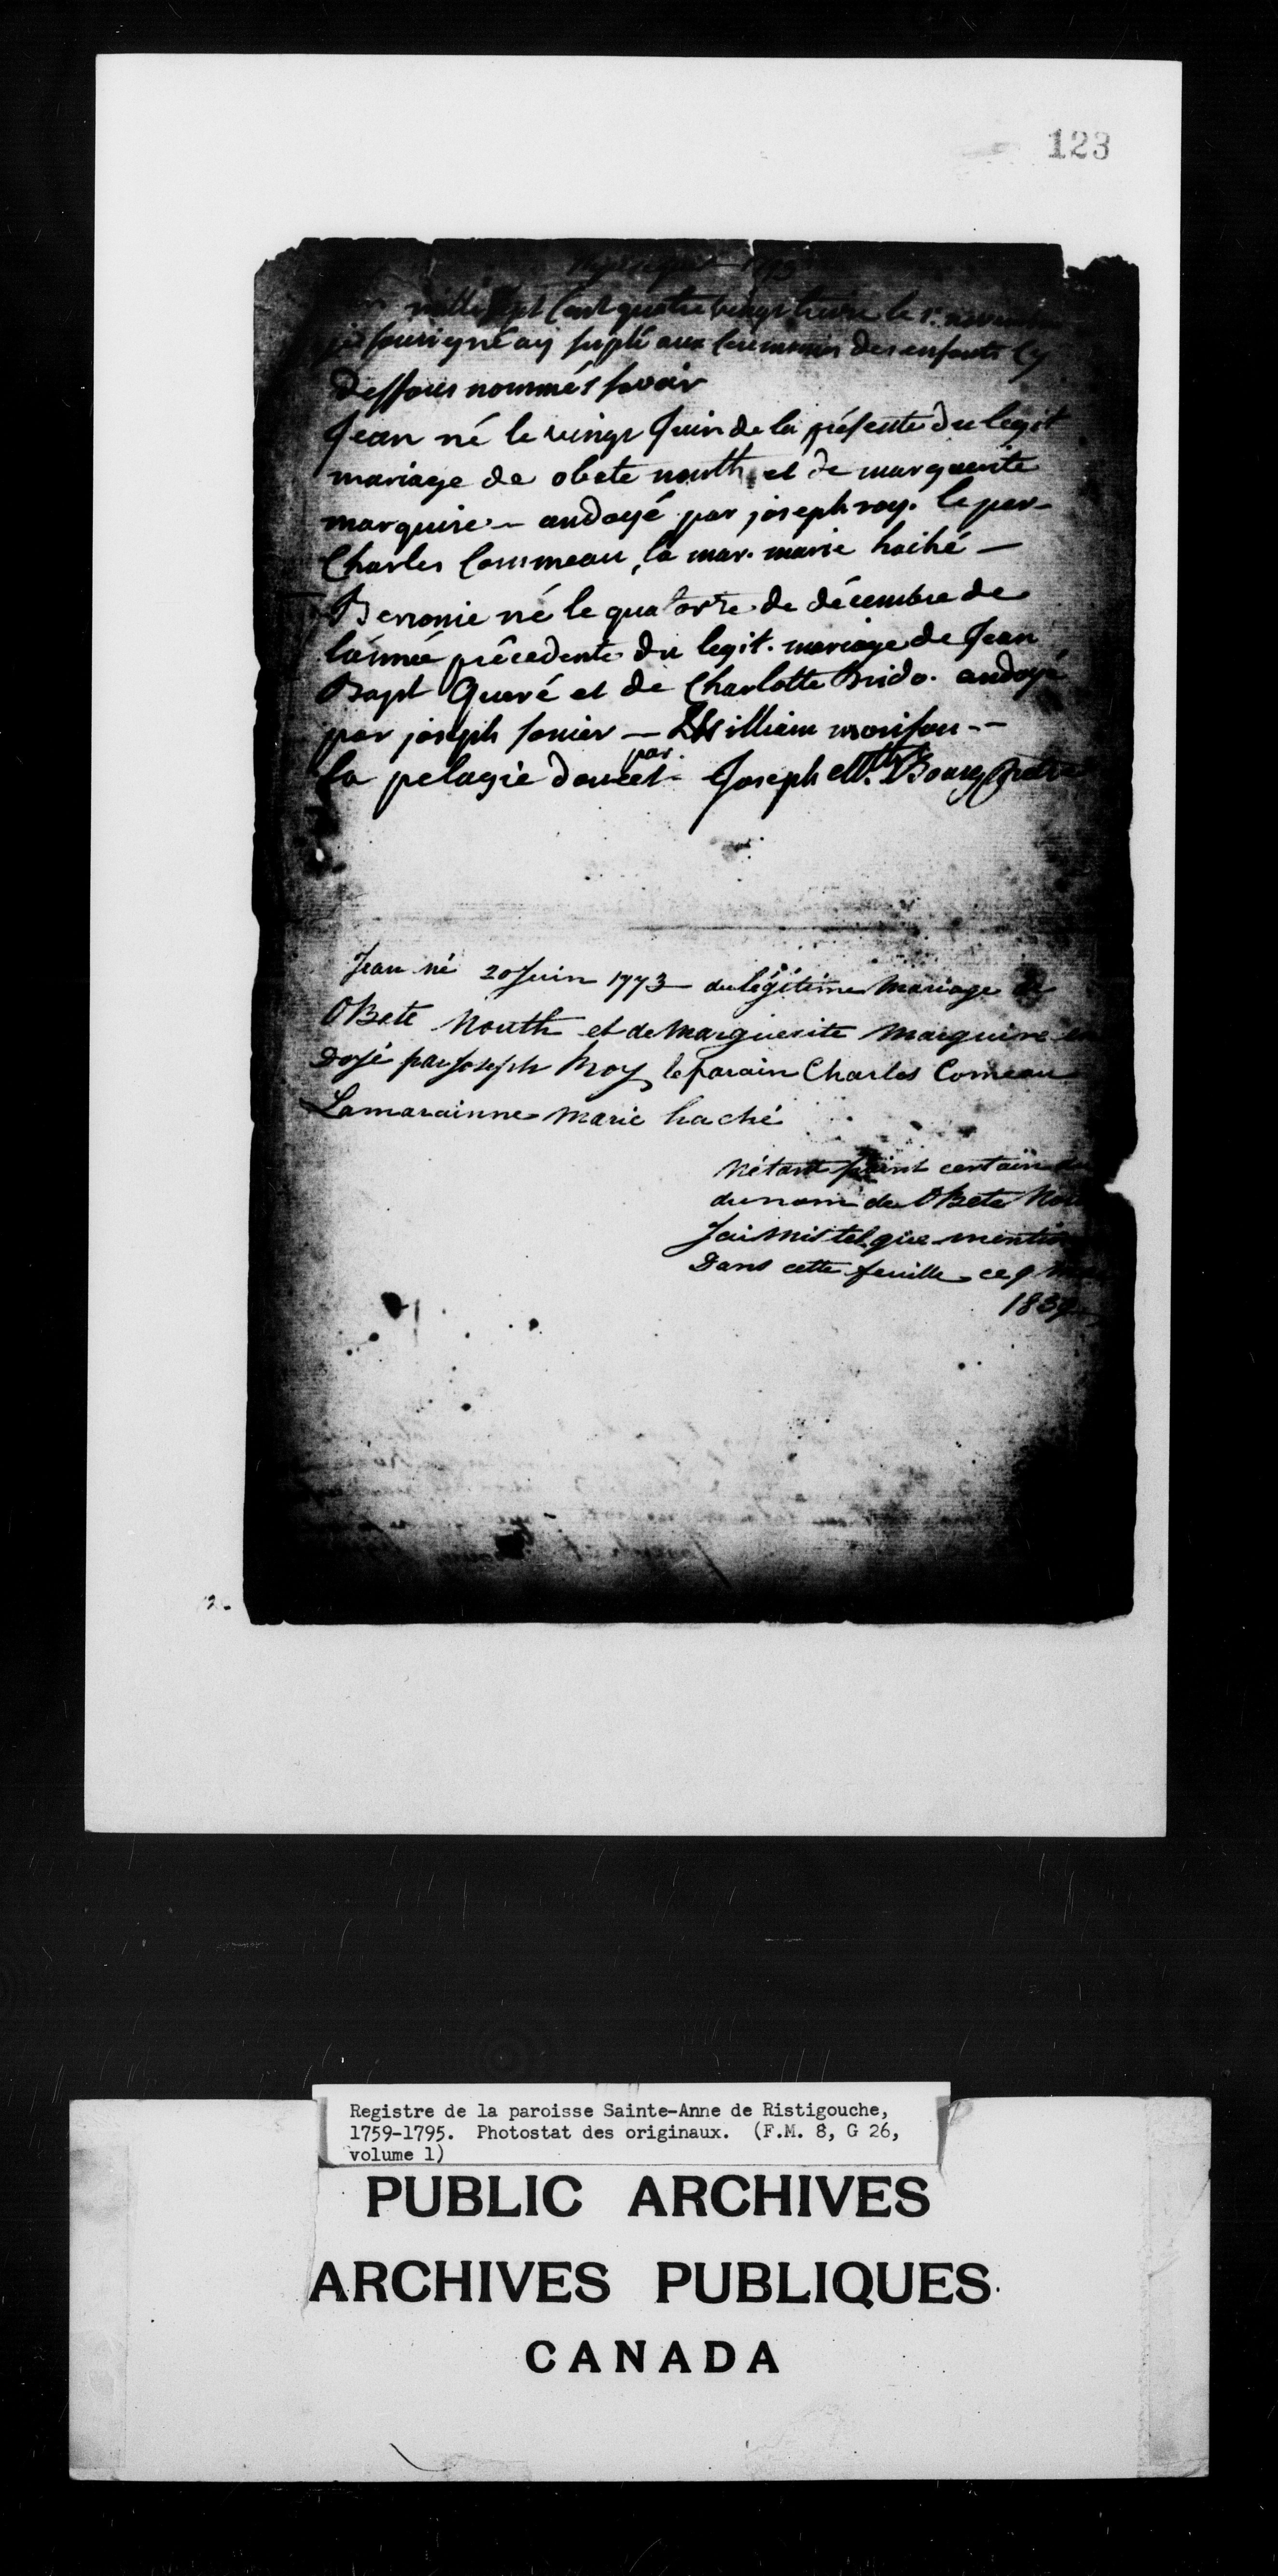 123
mille sept Cent quatre vingt treize le 1r. novembre
je sousigné ay suplé aux ceremonies des enfants cy
dessous nommés savoir
Jean né le vingt Juin de la présente du legit
mariage de obete nouth et de marguerite
marquire - andoyé par joseph roy. le par-
Charles Commeau, la mar. marie haché -
Beronie né le quatorze de décembre de
lánnée précedente du legit. mariage de Jean
Bapt Queré et de Charlotte Brido. andoyé
par joseph sonier - William morison -
par.
la pelagie doucet - Joseph Mth. Bourg Ptre
Jean né 20 Juin 1793 du légitime Mariage de
OBete Nouth et de Marguerite Marquire en
Doyé par Joseph Roy le parain Charles Comeau
La marainne Marie haché
Nétant point certain
du nom de OBete
Jai Mis tel que
Dans cette feuille ce 9
1839
12.
Registre de la paroisse Sainte-Anne de Ristigouche,
1759-1795. Photostat des originaux. (F.M. 8, G 26,
volume 1)
PUBLIC ARCHIVES
ARCHIVES PUBLIQUES
CANADA